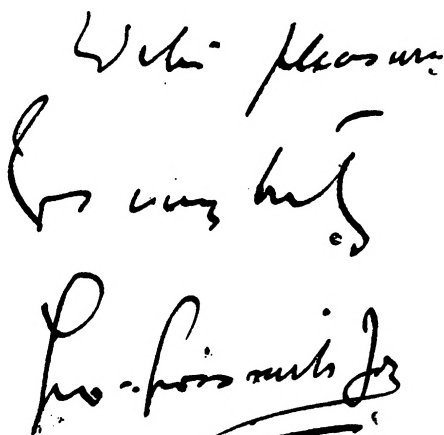 With pleasure
Yrs very truly
Geo: Grossmith Jr